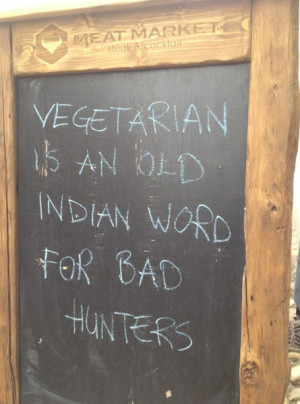 MEAT MARKET
steak & cocktail
VEGETARIAN
IS AN OLD
INDIAN WORD
FOR BAD
HUNTERS